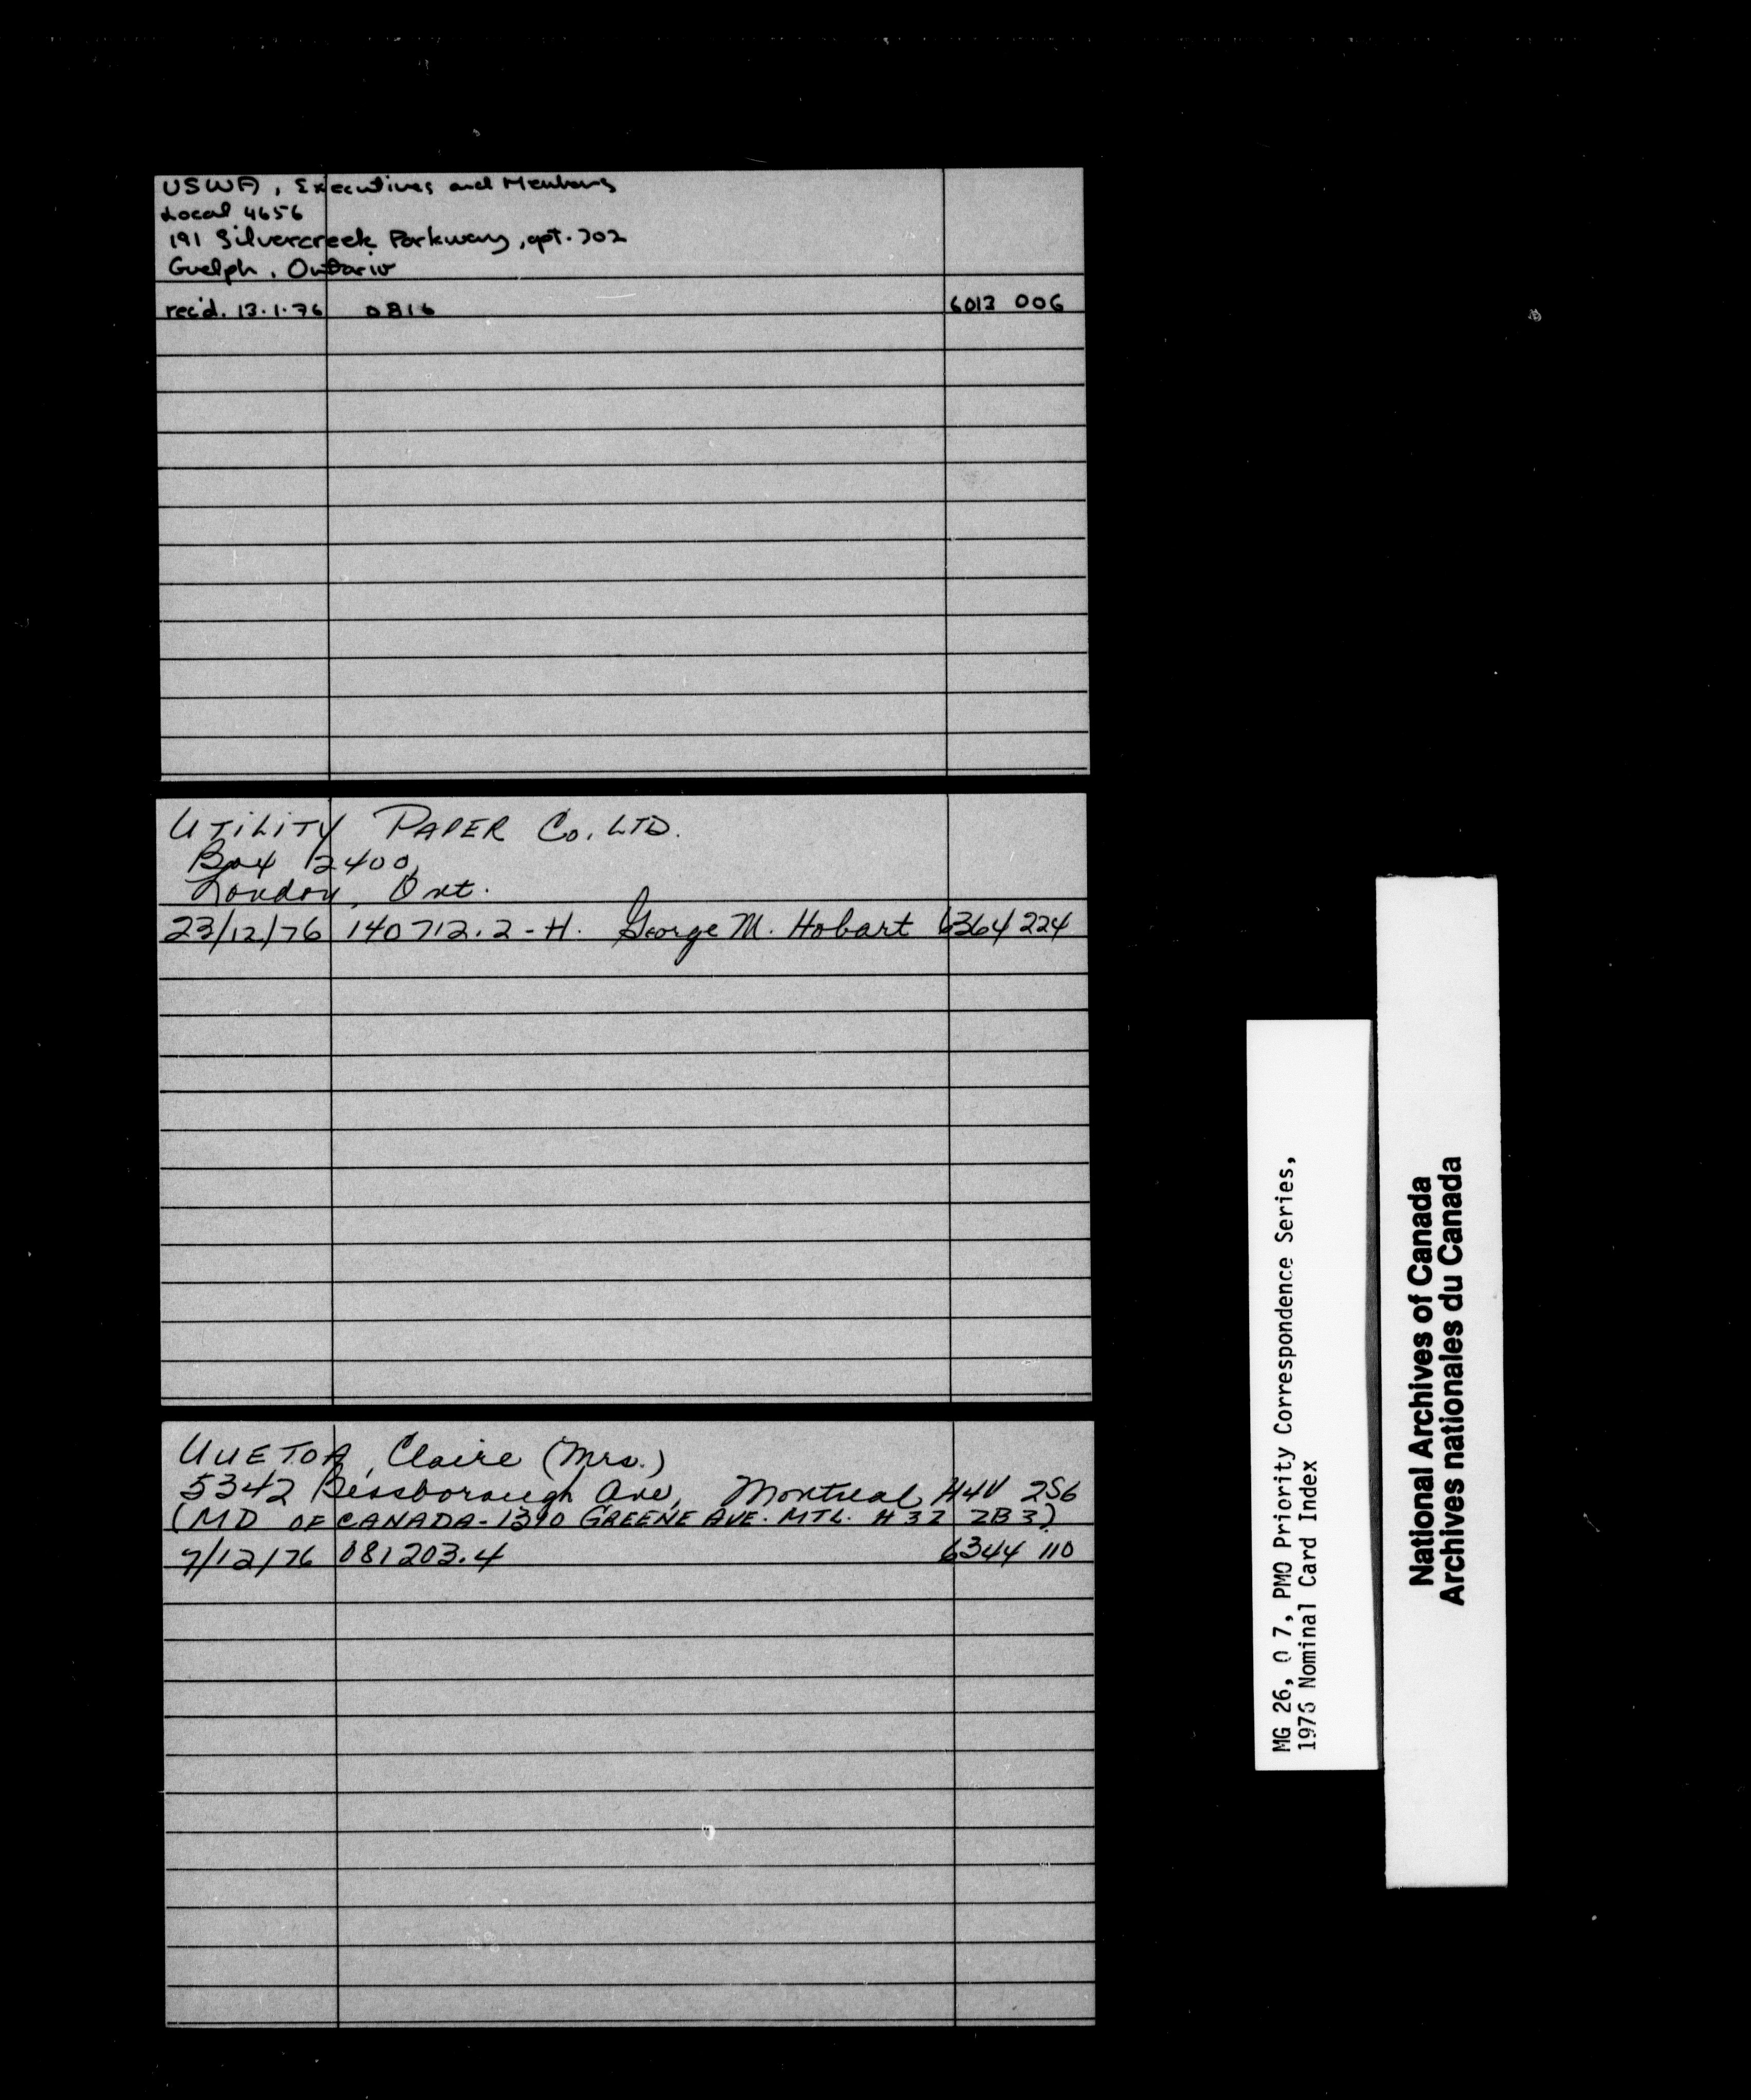 USWA, Executives and Members
Local 4656
191 Silvercreek Parkway, apt. 702
Guelph, Ontario
rec'd. 13.1.76 0816 6013 006
UTILITY PAPER Co. LTD.
Box 2400,
London, Ont.
23/12/76 140712.2-H. George M. Hobart 6364 224
UUETOA, Claire (Mrs.)
5342 Bessborough Ave, Montreal H4V 2S6
(MD OF CANADA-1390 GREENE AVE. MTL. H3Z 2B3)
7/12/76 081203.4 6344 110
MG 26, O 7, PMO Priority Correspondence Series,
1976 Nominal Card Index
National Archives of Canada
Archives nationales du Canada